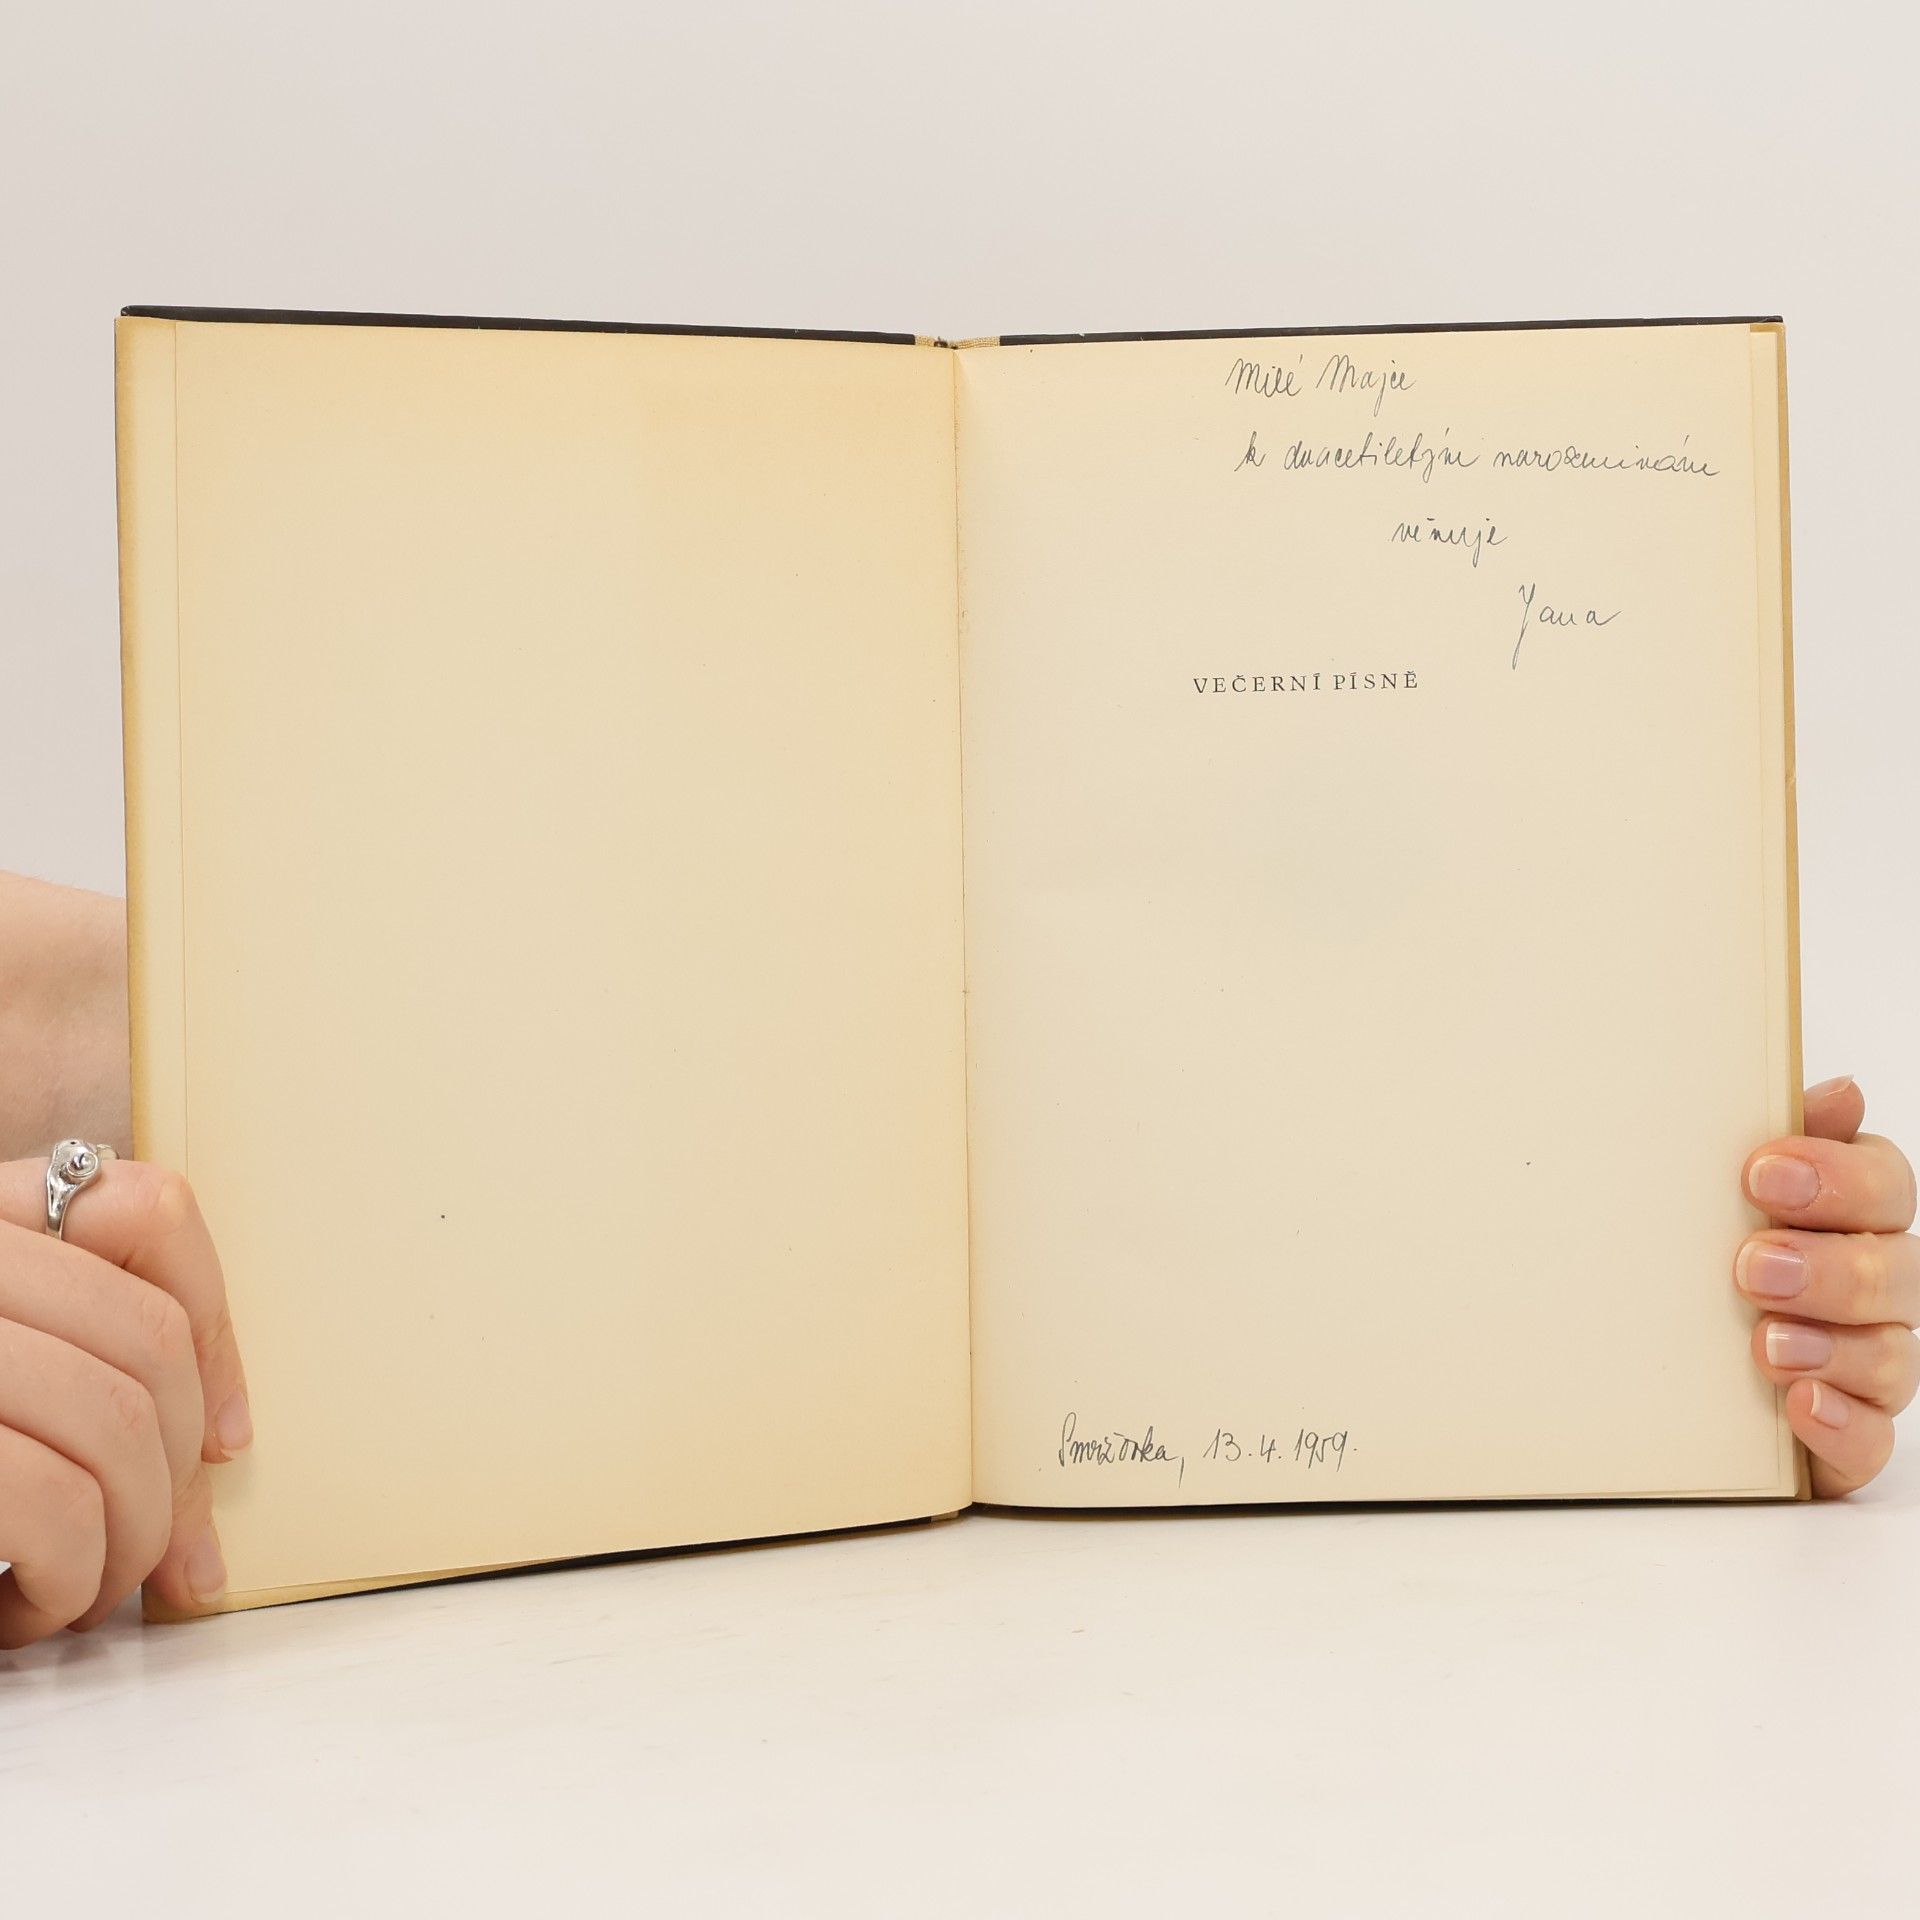 Milé Majce
k dvacetiletým narozeninám
věnuje
Jana
VEČERNÍ PÍSNĚ
Smržovka, 13.4.1959.